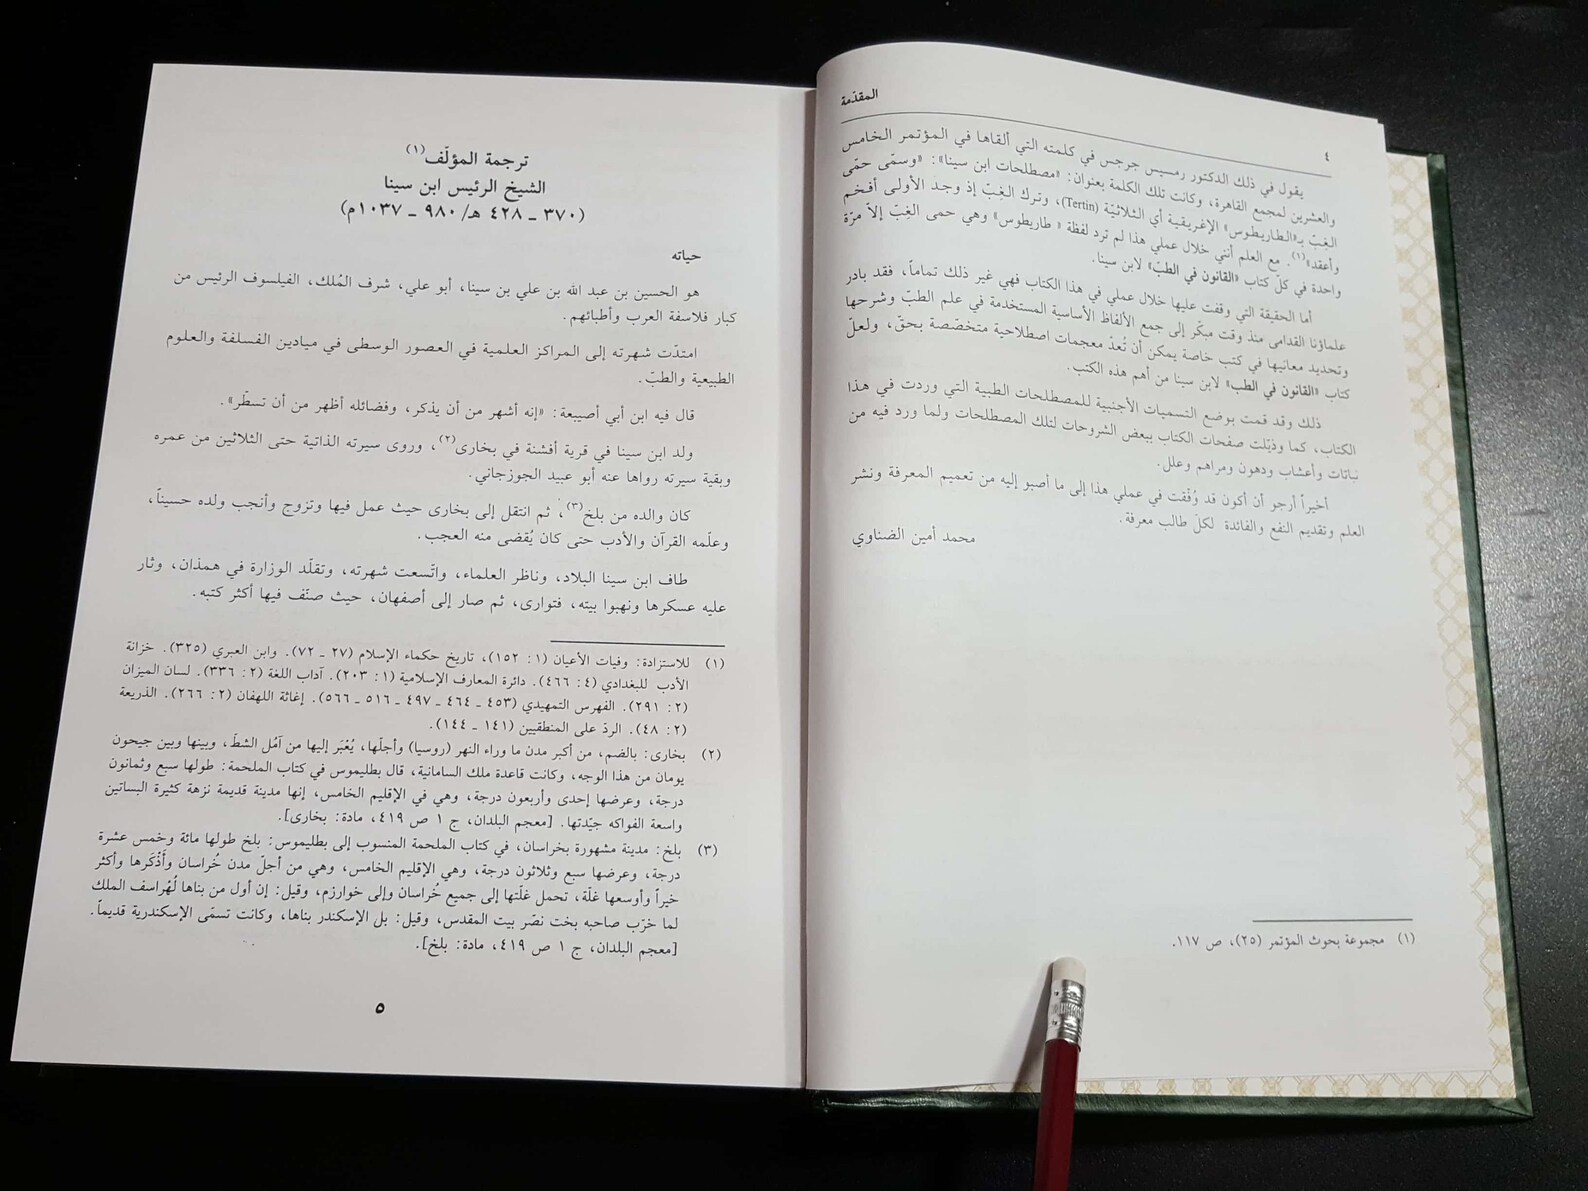 ٤
المقدّمة
يقول في ذلك الدكتور رمسيس جرجس في كلمته التي ألقاها في المؤتمر الخامس
والعشرين لمجمع القاهرة، وكانت تلك الكلمة بعنوان: «مصطلحات ابن سينا»: «وسمّى حمّى
الغِبّ بـ«الطاريطوس» الإغريقية أي الثلاثيّة (Tertin)، وترك الغِبّ إذ وجد الأولى أفخم
وأعقد»(١). مع العلم أنني خلال عملي هذا لم ترد لفظة «طاريطوس» وهي حمى الغِبّ إلاّ مرّة
واحدة في كلّ كتاب «القانون في الطبّ» لابن سينا.
أما الحقيقة التي وقفت عليها خلال عملي في هذا الكتاب فهي غير ذلك تماماً، فقد بادر
علماؤنا القدامى منذ وقت مبكّر إلى جمع الألفاظ الأساسية المستخدمة في علم الطبّ وشرحها
وتحديد معانيها في كتب خاصة يمكن أن تُعدّ معجمات اصطلاحية متخصّصة بحقّ، ولعلّ
كتاب «القانون في الطب» لابن سينا من أهم هذه الكتب.
ذلك وقد قمت بوضع التسميات الأجنبية للمصطلحات الطبية التي وردت في هذا
الكتاب، كما وذيّلت صفحات الكتاب ببعض الشروحات لتلك المصطلحات ولما ورد فيه من
نباتات وأعشاب ودهون ومراهم وعلل.
أخيراً أرجو أن أكون قد وُفّقت في عملي هذا إلى ما أصبو إليه من تعميم المعرفة ونشر
العلم وتقديم النفع والفائدة لكلّ طالب معرفة.
محمد أمين الضناوي
(١) مجموعة بحوث المؤتمر (٢٥)، ص ١١٧.
ترجمة المؤلّف(١)
الشيخ الرئيس ابن سينا
(٣٧٠ ـ ٤٢٨ هـ/ ٩٨٠ ـ ١٠٣٧م)
حياته
هو الحسين بن عبد الله بن علي بن سينا، أبو علي، شرف المُلك، الفيلسوف الرئيس من
كبار فلاسفة العرب وأطبائهم.
امتدّت شهرته إلى المراكز العلمية في العصور الوسطى في ميادين الفسلفة والعلوم
الطبيعية والطبّ.
قال فيه ابن أبي أصيبعة: «إنه أشهر من أن يذكر، وفضائله أظهر من أن تسطّر».
ولد ابن سينا في قرية أفشنة في بخارى(٢)، وروى سيرته الذاتية حتى الثلاثين من عمره
وبقية سيرته رواها عنه أبو عبيد الجوزجاني.
كان والده من بلخ(٣)، ثم انتقل إلى بخارى حيث عمل فيها وتزوج وأنجب ولده حسيناً،
وعلّمه القرآن والأدب حتى كان يُقضى منه العجب.
طاف ابن سينا البلاد، وناظر العلماء، واتّسعت شهرته، وتقلّد الوزارة في همذان، وثار
عليه عسكرها ونهبوا بيته، فتوارى، ثم صار إلى أصفهان، حيث صنّف فيها أكثر كتبه.
(١) للاستزادة: وفيات الأعيان (١: ١٥٢)، تاريخ حكماء الإسلام (٢٧ ـ ٧٢). وابن العبري (٣٢٥). خزانة
الأدب للبغدادي (٤: ٤٦٦). دائرة المعارف الإسلامية (١: ٢٠٣). آداب اللغة (٢: ٣٣٦). لسان الميزان
(٢: ٢٩١). الفهرس التمهيدي (٤٥٣ ـ ٤٦٤ ـ ٤٩٧ ـ ٥١٦ ـ ٥٦٦). إغاثة اللهفان (٢: ٢٦٦). الذريعة
(٢: ٤٨). الردّ على المنطقيين (١٤١ ـ ١٤٤).
(٢) بخارى: بالضم، من أكبر مدن ما وراء النهر (روسيا) وأجلّها، يُعْبَر إليها من آمُل الشطّ، وبينها وبين جيحون
يومان من هذا الوجه، وكانت قاعدة ملك السامانية، قال بطليموس في كتاب الملحمة: طولها سبع وثمانون
درجة، وعرضها إحدى وأربعون درجة، وهي في الإقليم الخامس، إنها مدينة قديمة نزهة كثيرة البساتين
واسعة الفواكه جيّدتها. [معجم البلدان، ج ١ ص ٤١٩، مادة: بخارى].
(٣) بلخ: مدينة مشهورة بخراسان، في كتاب الملحمة المنسوب إلى بطليموس: بلخ طولها مائة وخمس عشرة
درجة، وعرضها سبع وثلاثون درجة، وهي الإقليم الخامس، وهي من أجلّ مدن خُراسان وأَذْكَرها وأكثر
خيراً وأوسعها غلّة، تحمل غلّتها إلى جميع خُراسان وإلى خوارزم، وقيل: إن أول من بناها لُهراسف الملك
لما خرّب صاحبه بخت نصّر بيت المقدس، وقيل: بل الإسكندر بناها، وكانت تسمّى الإسكندرية قديماً.
[معجم البلدان، ج ١ ص ٤١٩، مادة: بلخ].
٥